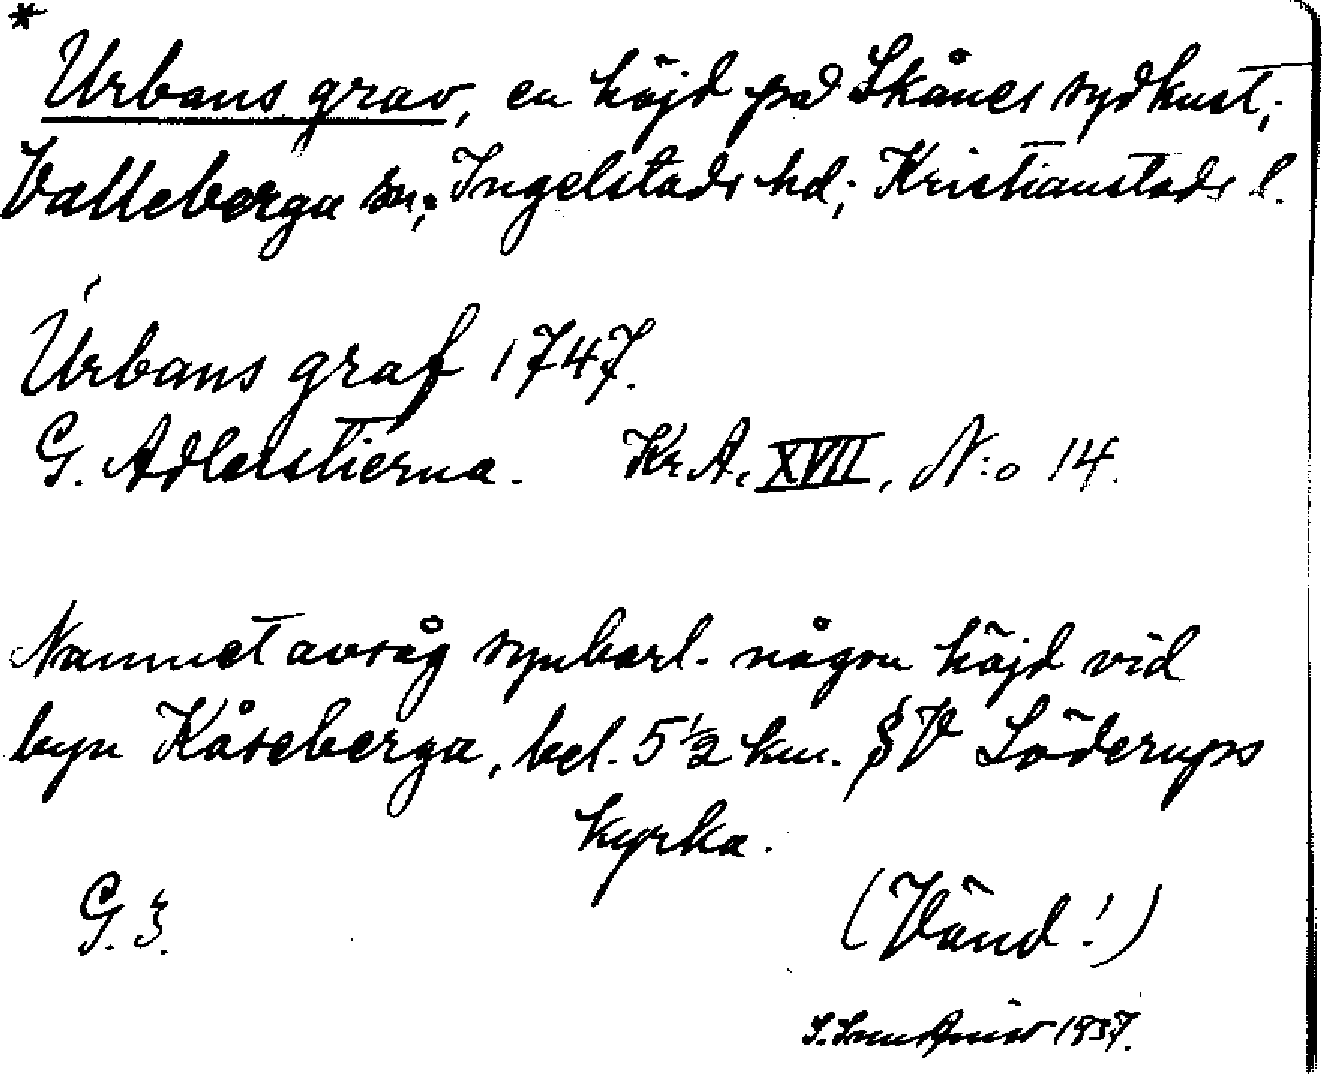 *
Urbans grav, en höjd på Skånes sydkust,
Valleberga sn; Ingelstads hd; Kristianstads l.
Urbans graf 1747.
G. Adlerstierna. Kr. A. XVII, N:o 14.
Namnet avsåg synbarl. någon höjd vid
byn Kåseberga, bel. 5 1/2 km. SV Löderups
kyrka.
G. 3.
(Vänd!)
1937.